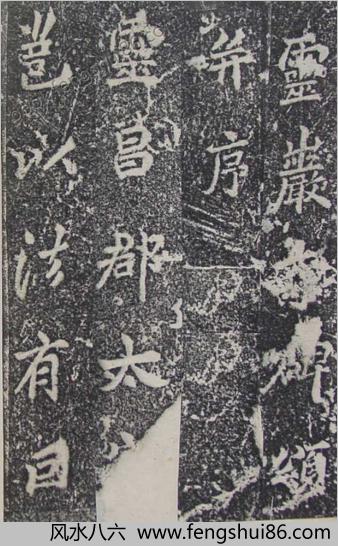 靈巖寺碑頌
并序
靈昌郡太
邕以法有因
风水八六 www.fengshui86.com